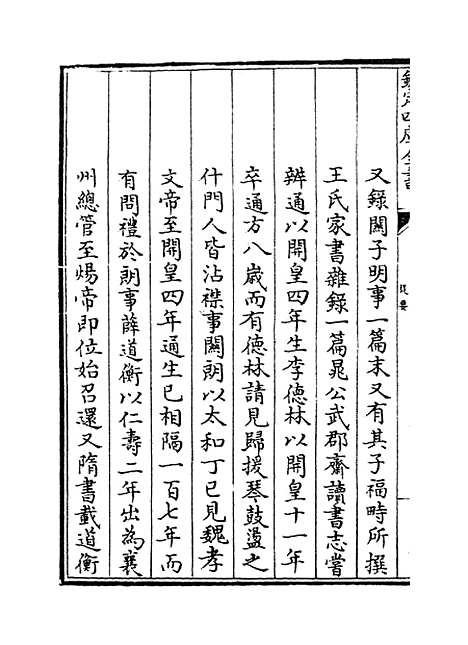 欽定四庫全書
提要
又錄關子明事一篇末又有其子福畤所撰
王氏家書雜錄一篇晁公武郡齋讀書志嘗
辨通以開皇四年生李德林以開皇十一年
卒通方八歲而有德林請見歸援琴鼓盪之
什門人皆沾襟事關朗以太和丁巳見魏孝
文帝至開皇四年通生已相隔一百七年而
有問禮於朗事薛道衡以仁壽二年出為襄
州總管至煬帝即位始召還又隋書載道衡